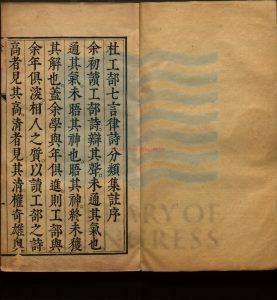 杜工部七言律詩分類集註序
余初讀工部詩辯其聲未通其氣也
通其氣未晤其神也晤其神終未獲
其解也蓋余學與年俱進則工部與
余年俱浚相人之質以讀工部之詩
高者見其高清者見其清權奇雄奥
LIBRARY OF
CONGRESS